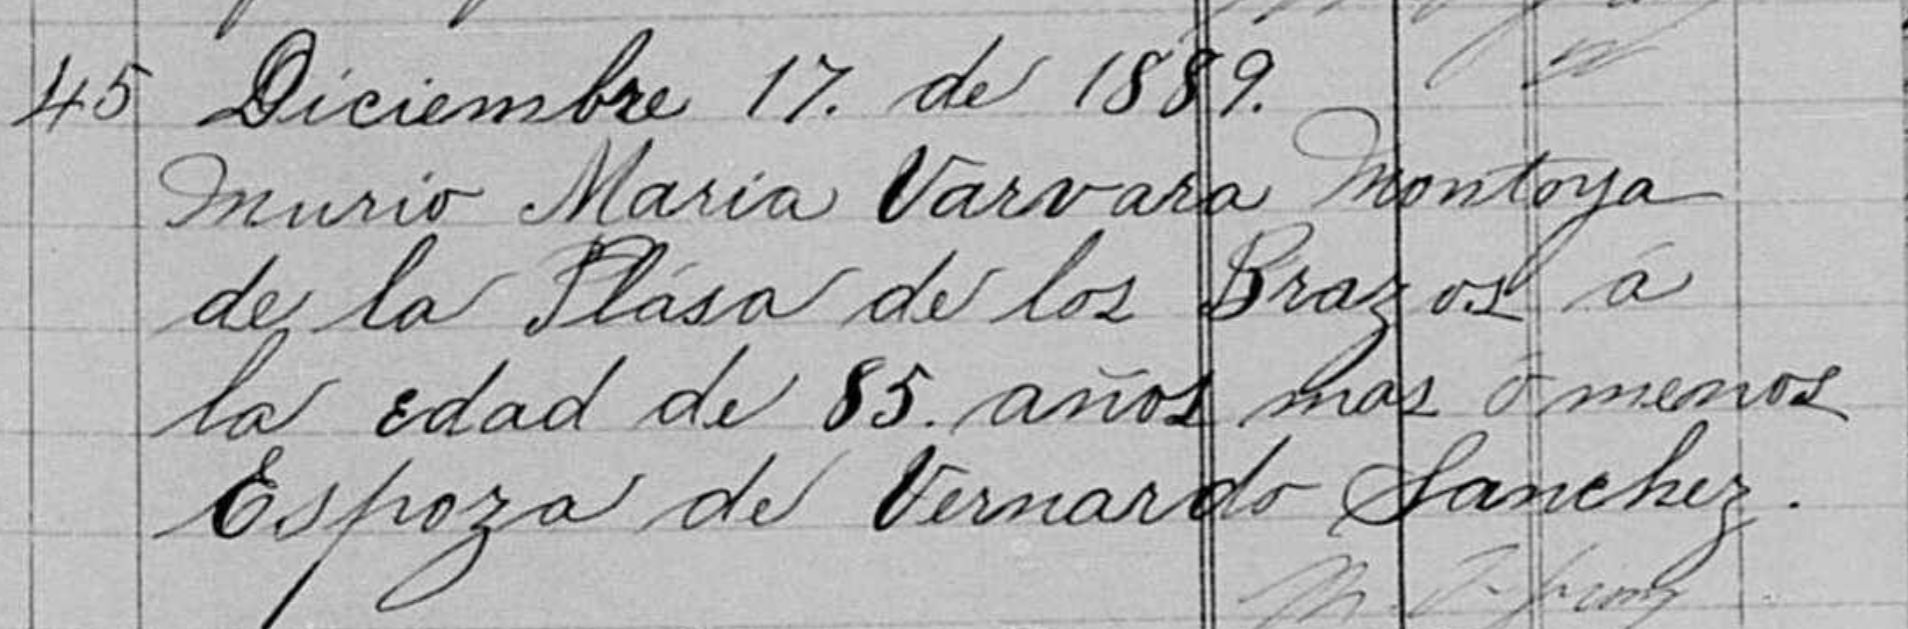 45 Diciembre 17. de 1889.
Murio Maria Varvara Montoya
de la Plása de los Brazos á
la edad de 85. años mas ó menos
Espoza de Vernardo Sanchez.